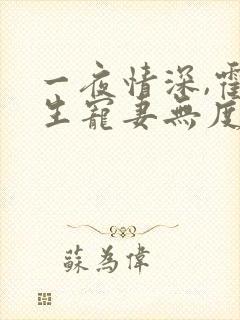 一夜情深,霍
生寵妻無度
蘇為偉